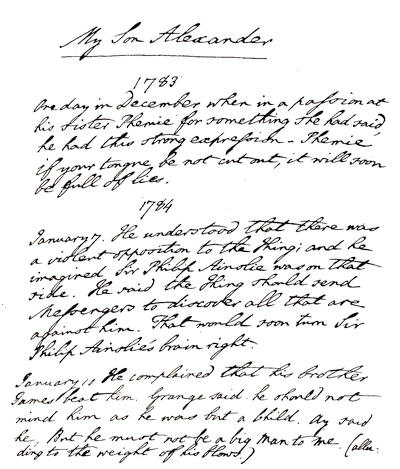 My Son Alexander
1783
One day in December when in a passion at
his sister Phemie for something she had said,
he had this strong expression - Phemie
if your tongue be not cut out, it will soon
be full of lies.
1784
January 7. He understood that there was
a violent opposition to the King; and he
imagined Sir Philip Ainslie was on that
side. He said the King should send
Messengers to discover all that are
against him. That would soon turn Sir
Philip Ainslie's brain right.
January 11 He complained that his brother
James beat him. Grange said he should not
mind him as he was but a child. Ay said
he, But he must not be a big man to me. (allu-
ding to the weight of his blows.)